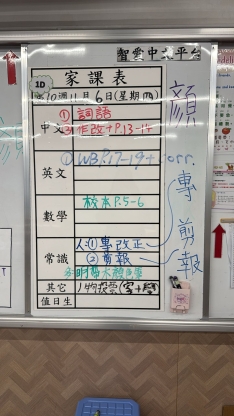 智雲中文平台
1D
家課表
第10週11月6日(星期四)
中文 ①詞語
②作改+P.13-14
英文 ①WB P.17-19+corr.
數學 校本P.5-6
常識 人①專改正
②剪報
其它
值日生
顏
專
剪
報